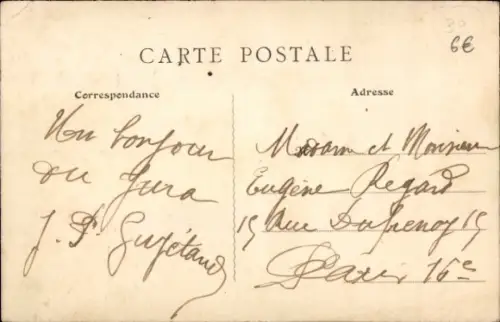 6€
CARTE POSTALE
Correspondance
Adresse
Un bonjour
du Jura
J. P. Guyétand
Madame et Monsieur
Eugène Regard
15 Rue Dufrenoy 15
Paris 16e